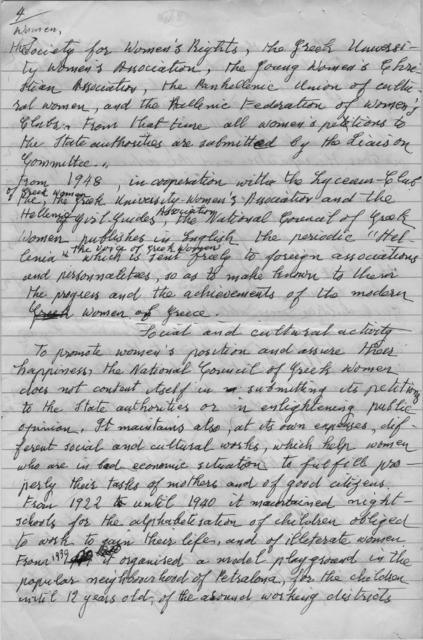 4
Women,
the Society for Women's Rights, the Greek Universi-
ty Women's Association, the Young Women's Chri-
stian Association, the Panhellenic Union of cultu-
ral women, and the Hellenic Federation of Women's
Clubs. From that time all women's petitions to
the State authorities are submitted by the Liaison
Committee.
From 1948, in cooperation with the Lyceum-Club
of Greek Women
the Greek University Women's Association and the
Association
Hellenic Girl Guides, the National Council of Greek
Women publishes in English the periodic "Hel-
"the voice of Greek Women"
lenia" which is sent freely to foreign associations
and personnalities, so as to make known to them
the progress and the achievements of the modern
women of Greece.
Social and cultural activity
To promote women's position and assure their
happiness, the National Council of Greek Women
does not content itself in submitting its petitions
to the State authorities or in enlightening public
opinion. It maintains also, at its own expenses, dif-
ferent social and cultural works, which help women
who are in bad economic situation to fulfill pro-
perly their tasks of mothers and of good citizens.
From 1922 until 1940 it maintained night-
schools for the alphabetisation of children obliged
to work to gain their life, and of illeterate women
From 1939 it organised a model playground in the
popular neighbourhood of Petralona, for the children
until 12 years old, of the around working districts